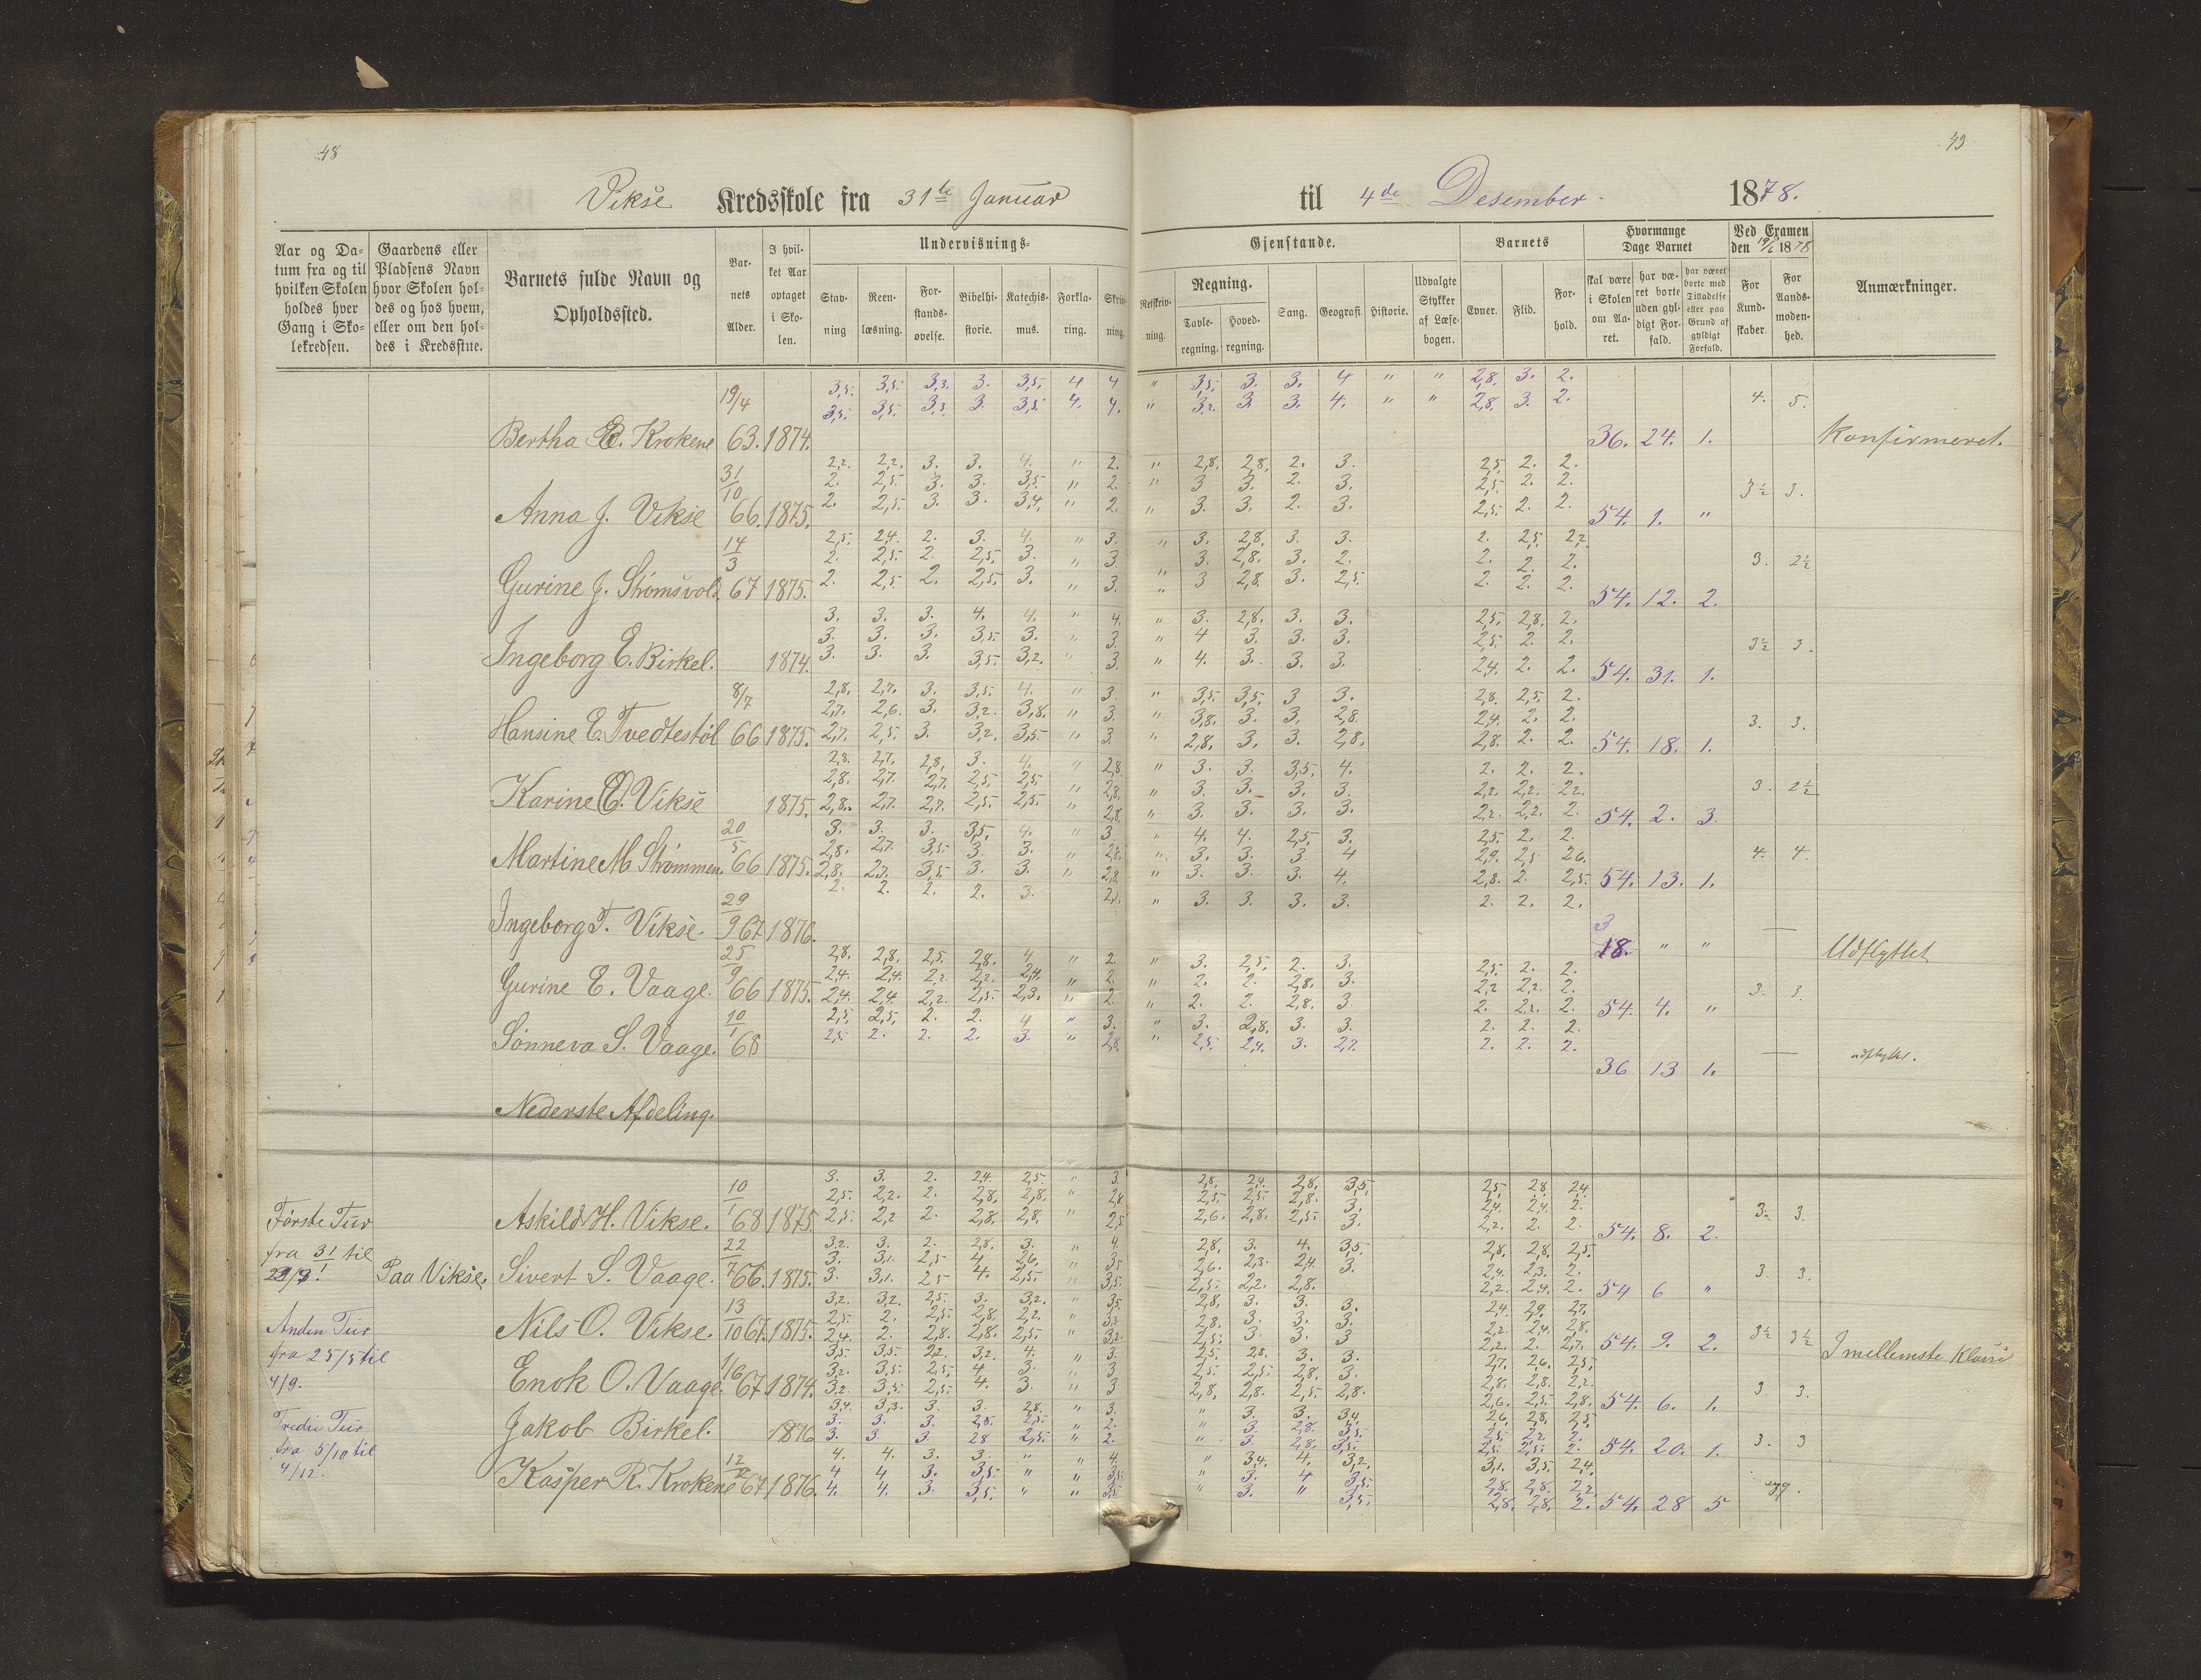 48
49
Vikse Kredsskole fra 31te Januar til 4de Desember 1878.
Aar og Datum fra og til hvilken Skolen holdes hver Gang i Skolekredsen.
Gaardens eller Pladsens Navn hvor Skolen holdes og hos hvem, eller om den holdes i Kredsstue.
Barnets fulde Navn og Opholdssted.
Barnets Alder.
I hvilket Aar optaget i Skolen.
Undervisnings-
Stavning
Reenlæsning.
Forstandsøvelse.
Bibelhistorie.
Katechismus.
Forklaring.
Skrivning.
Gjenstande.
Retskrivning.
Regning.
Tavleregning.
Hovedregning.
Sang.
Geografi.
Historie.
Udvalgte Stykker af Læsebogen.
Barnets
Evner.
Flid.
Forhold.
Hvormange Dage Barnet
skal være i Skolen om Aaret.
har været borte uden gyldigt Forfald.
har været borte med Tilladelse eller paa Grund af gyldigt Forfald.
Ved Examen den 1878
For Kundskaber.
For Aandsmodenhed.
Anmærkninger.
3,5. 3,5. 3,3. 3. 3,5. 4 4 " 3,5. 3. 3. 4 " " 2,8. 3. 2.
19/4 3,5. 3,5. 3,3. 3. 3,5. 4. 4. " 3,2. 3. 3. 4. " " 2,8. 3. 2. 4. 5.
Bertha E. Krokene 63. 1874. 36. 24. 1. Konfirmeret.
2,2. 2,2. 3. 3. 4. " 2. " 2,8. 2,8. 2. 3. 2,5. 2. 2.
31/10 2. 2,5. 3. 3. 3,5. " 2. " 3 3. 2. 3. 2,5. 2. 2. 3½ 3.
Anna J. Vikse 66. 1875. 2. 2,5. 3. 3. 3,4. " 2. " 3. 3. 2. 3. 2,5. 2. 2. 54. 1. "
14/3 2,5. 2,4. 2. 3. 4. " 3. " 3. 2,8. 3. 3. 2. 2,5. 2,2.
2. 2,5. 2. 2,5. 3. " 3. " 3. 2,8. 3. 2. 2. 2. 2. 3. 2½
Gurine J. Strømsvold. 67 1875. 2. 2,5 2. 2,5. 3. " 3. " 3 2,8. 3. 2,5. 2. 2. 2. 54. 12. 2.
3. 3. 3. 4. 4. " 4. " 3. 2,8. 3. 3. 2,5. 2,8. 2.
3. 3. 3. 3,5. 3. " 3. " 4 3. 3. 3. 2,5. 2. 2. 3½ 3.
Ingeborg E. Birkel. 1874. 3. 3. 3. 3,5. 3,2. " 3. " 4. 3. 3. 3. 2,4. 2. 2. 54. 31. 1.
8/7 2,8. 2,7. 3. 3,5. 4. " 3. " 3,5. 3,5. 3 3. 2,8. 2,5. 2.
2,7. 2,6. 3. 3,2. 3,8. " 3. " 3,8. 3. 3. 2,8. 2,4. 2. 2. 3. 3.
Hansine E. Tvedtestøl 66 1875. 2,7. 2,5. 3. 3,2. 3,5. " 3. " 2,8. 3. 3. 2,8. 2,8. 2. 2. 54. 18. 1.
2,8. 2,7. 2,8. 3. 4. " 2,8. " 3. 3. 3,5. 4. 2. 2. 2.
2,8. 2,7. 2,7. 2,5. 2,5. " 2,8. " 3. 3. 3. 3. 2,2. 2,2. 2,2. 3. 2½
Karine E. Vikse 1875. 2,8. 2,7. 2,7. 2,5. 2,5. " 2,8. " 3. 3. 3. 3. 2,2. 2,2. 2. 54. 2. 3.
20/5 3. 3. 3. 3,5. 4. " 3. " 4. 4. 2,5. 3. 2,5. 2. 2.
2,8. 2,7. 3,5. 3. 3. " 2,8. " 3. 3. 3. 4 2,9. 2,5 2,6. 4. 4.
Martine M Strømmen. 66 1875. 2,8. 2,7. 3,5 3. 3. " 2,8. " 3. 3. 3. 4. 2,8. 2. 2,5. 54. 13. 1.
29 2. 2. 2. 2. 3. " 3. 3. 3. 3. 2. 2. 2.
Ingeborg T. Vikse. 9 67 1876. 18. " " — Udflyttet
25 2,8. 2,8. 2,5. 2,8. 4 " 2. " 3. 2,5. 2. 3. 2,5. 2. 2.
2,4. 2,4. 2,2. 2,2. 2,4. " 2. " 2. 2. 2,8. 3. 2,2 2,2. 2. 3. 3.
Gurine E. Vaage. 9/66 1875. 2,4. 2,4. 2,2. 2,5. 2,3. " 2. " 2. 2. 2,8. 3 2. 2,2. 2. 54. 4. "
10/1 2,5. 2,5. 2. 2. 4 " 3. " 3. 2,8. 3. 3. 2. 2. 2.
Sønneva S. Vaage. 68 2,5. 2. 2. 2. 3. " 2,8. " 2,5. 2,4. 3. 2,7. 2. 2. 2.
36 13 1. — udflyttet.
Nederste Afdeling.
3. 3. 2. 2,4. 2,5. " 3. 2,8. 2,4. 2,8. 3,5. 2,5. 2,8. 2,4.
10/1 2,5. 2,2. 2. 2,8. 2,8. " 2,8 2,5. 2,5. 2,8. 3. 2,4. 2,4. 2. 3. 3.
Første Tur Askild H. Vikse. 68 1875 2,5. 2,2 2. 2,8. 2,8. " 2,5 2,6. 2,8. 2,5. 3. 2,2. 2. 2. 54. 8. 2.
fra 31/1 til
22 3,2. 3. 2. 2,8. 3. " 4. 2,8. 3. 4. 3,5. 2,8. 2,8. 2,5.
3. 3,1. 2,5. 4. 2,6. " 3,5 2,6. 2,3. 2,4. 3. 2,4. 2,3. 2. 3. 3.
Paa Vikse. Sivert S. Vaage. 7/66. 1875. 3. 3,1. 2,5 4. 2,5. " 3,5. 2,5. 2,2. 2,8. 2,2. 2,4. 2. 54 6 "
13 3,2. 3,2. 2,5. 3. 3,2. " 3,5. 2,8. 3. 3. 3. 2,4. 2,9. 2,7.
2,5. 2. 2,5. 2,8. 2,2. " 3,3. 2,8. 3. 3. 3. 2,2. 2,4. 2,8. 3½ 3½
Anden Tur Nils O. Vikse. 10 67. 1875. 2,4. 2. 2,8. 2,8. 2,5. " 3,2. 2,5. 3. 3. 3 2,2. 2. 2,7. 54. 9. 2. I mellemste Klasse
fra 25/5 til
3,5. 3,5. 2,2. 3,2. 4. " 3. 2,5. 2,8. 3. 3. 2,7. 2,6. 2,5.
1/6 3,2. 3,5. 2,5. 4 3. " 3 2,5. 2,5. 2,8. 3. 2,8. 2,8. 2,2. 3. 3.
4/9. Enok O. Vaage. 67 1874. 3,2. 3,5. 2,5. 4. 3. " 3 2,8. 2,8. 2,5. 2,8. 2,6. 2,5. 2,8. 54. 6. 1.
3,4. 3,3. 3. 3. 2,8. " 3. " 3. 3. 3,4. 2,6. 2,8. 2,5.
Tredie Tur 3. 3. 3. 2,8. 2,5. " 2. " 3. 2,8. 3,5. 2,5. 2,2. 2. 3. 3
Jakob Birkel. 1876 3. 3 3. 2,8 2,5. " 2. " 3. 2,8. 3,5. 2,5. 2,5. 2. 54. 20. 1.
fra 5/10 til
4/12.
12 4. 4. 3. 3. " " 4. " 3,4. 4. 3,2. 3,1. 3,5. 2,4.
4 4 3. 3,5. " " 3,5. " 3. 4 3,5. 2,8. 2,8. 2,2. syg.
Kasper R. Krokene 67 1876. 4. 4. 3. 3,5. " " 3,5. " 3. " 3,5. 2,8. 2,8. 2. 54. 28 5